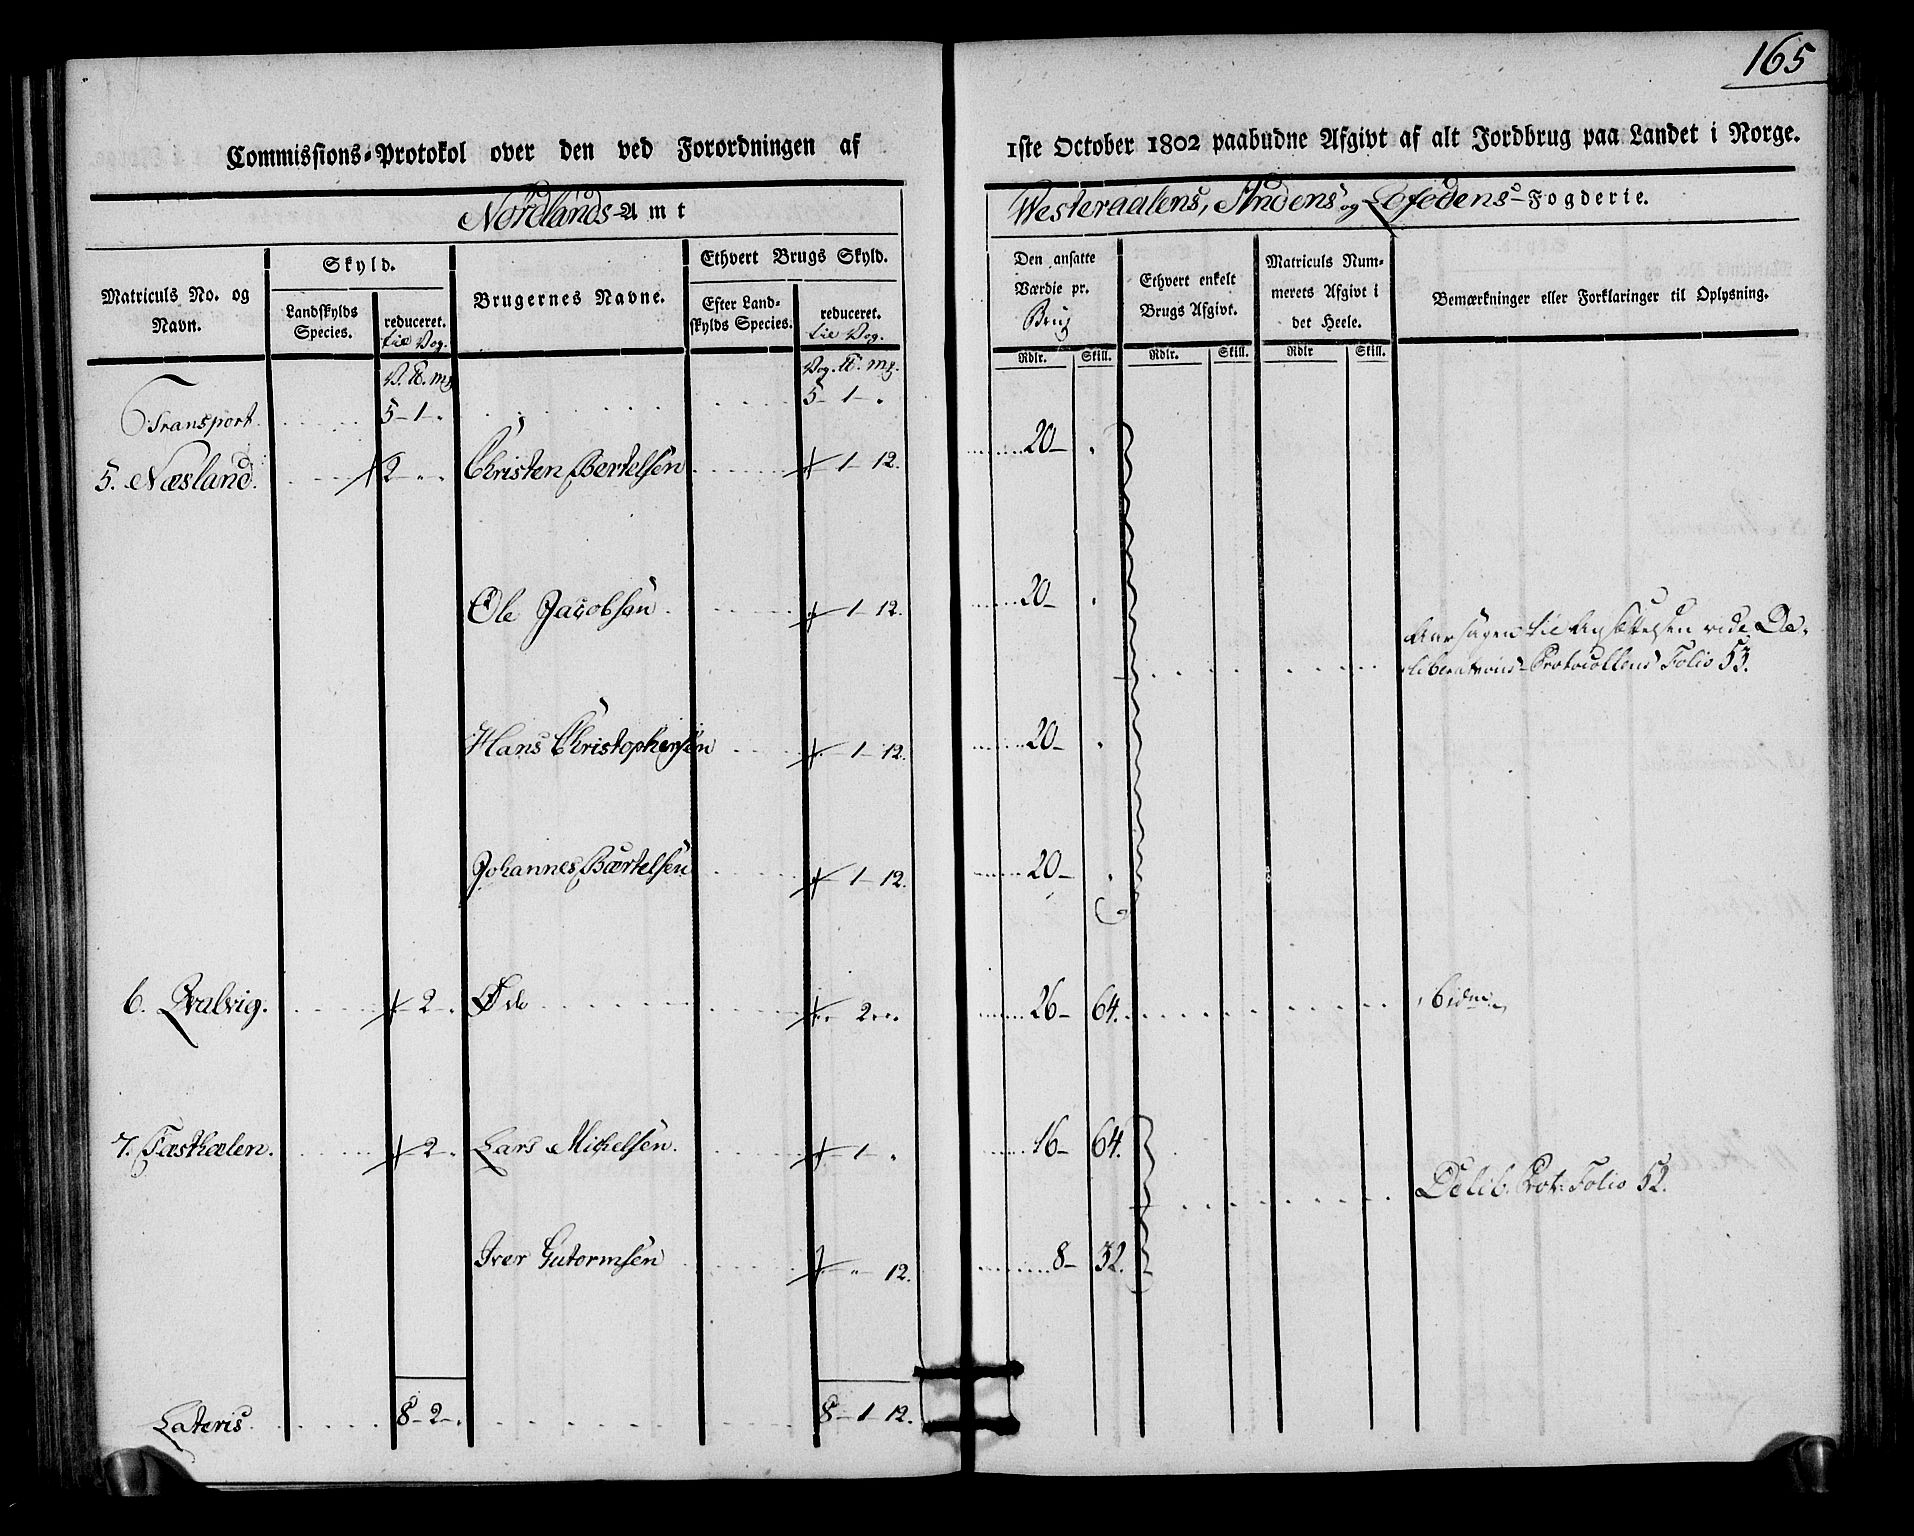 165
Commissions-Protokol over den ved Forordningen af 1ste October 1802 paabudne Afgivt af alt Jordbrug paa Landet i Norge.
Nordlands-Amt
Westeraalens, Andens og Lofodens-Fogderie.
Matriculs No. og Navn.
Skyld.
Landskylds Species.
reduceret. til Vog.
Brugernes Navne.
Ethvert Brugs Skyld.
Efter Landskylds Species.
reduceret. til Vog.
Den ansatte Værdie pr. Brug
Ethvert enkelt Brugs Afgivt.
Matriculs Nummerets Afgivt i det Heele.
Bemærkninger eller Forklaringer til Oplysning.
Rdlr. Skill. Rdlr. Skill. Rdlr Skill.
V. ℔. mg. Vog. ℔. mg.
Transport. 5-1-. 5-1-.
5. Næsland. 2-.-. Christen Bertelsen 1-12. 20-.
Ole Jacobsen. 1-12. 20-.
Aarsagen til Ansættelsen vide De-
liberations-Protocollens Folio 53.
Hans Christophersen 1-12. 20-.
Johannes Bærtelsen 1-12. 20-.
6. Qvalvig. 2-. Øde 2-. 26-64. ibidm
7. Fæsthælen. 2-. Lars Michelsen. 1-. 16-64.
Delib. Prot: Folio 52.
Iver Gutormsen 12. 8-32.
Lateris. 8-2-. 8-1-12.